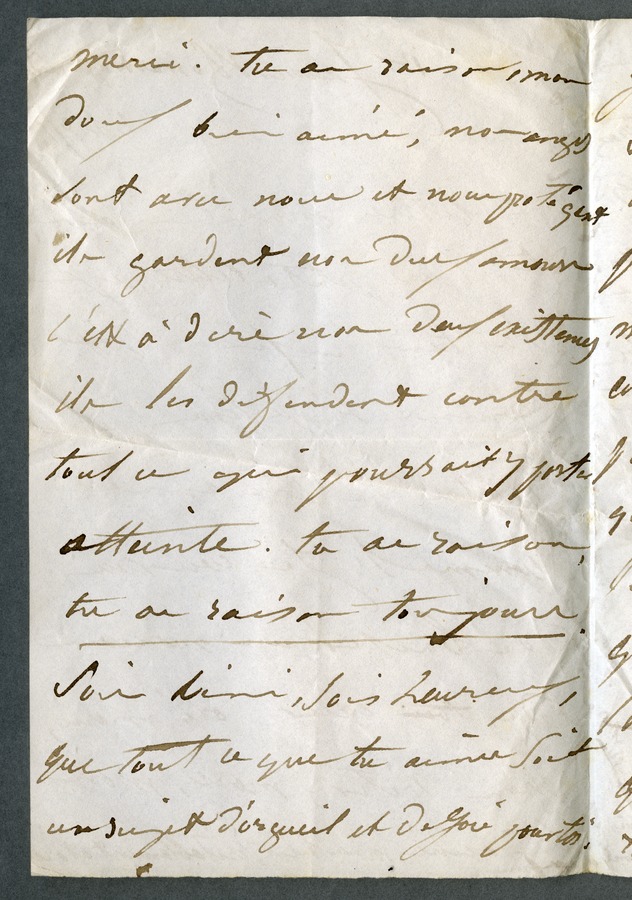 merci. tu as raison, mon
doux bien aimé, nos anges
sont avec nous et nous protégent
ils gardent nos deux amours
c'est à dire nos deux existences
ils les défendent contre
tout ce qui pourrait y porter
atteinte. tu as raison,
tu as raison toujours.
Sois béni, sois heureux,
que tout ce que tu aimes soit
un sujet d'orgueil et de joie pour toi.